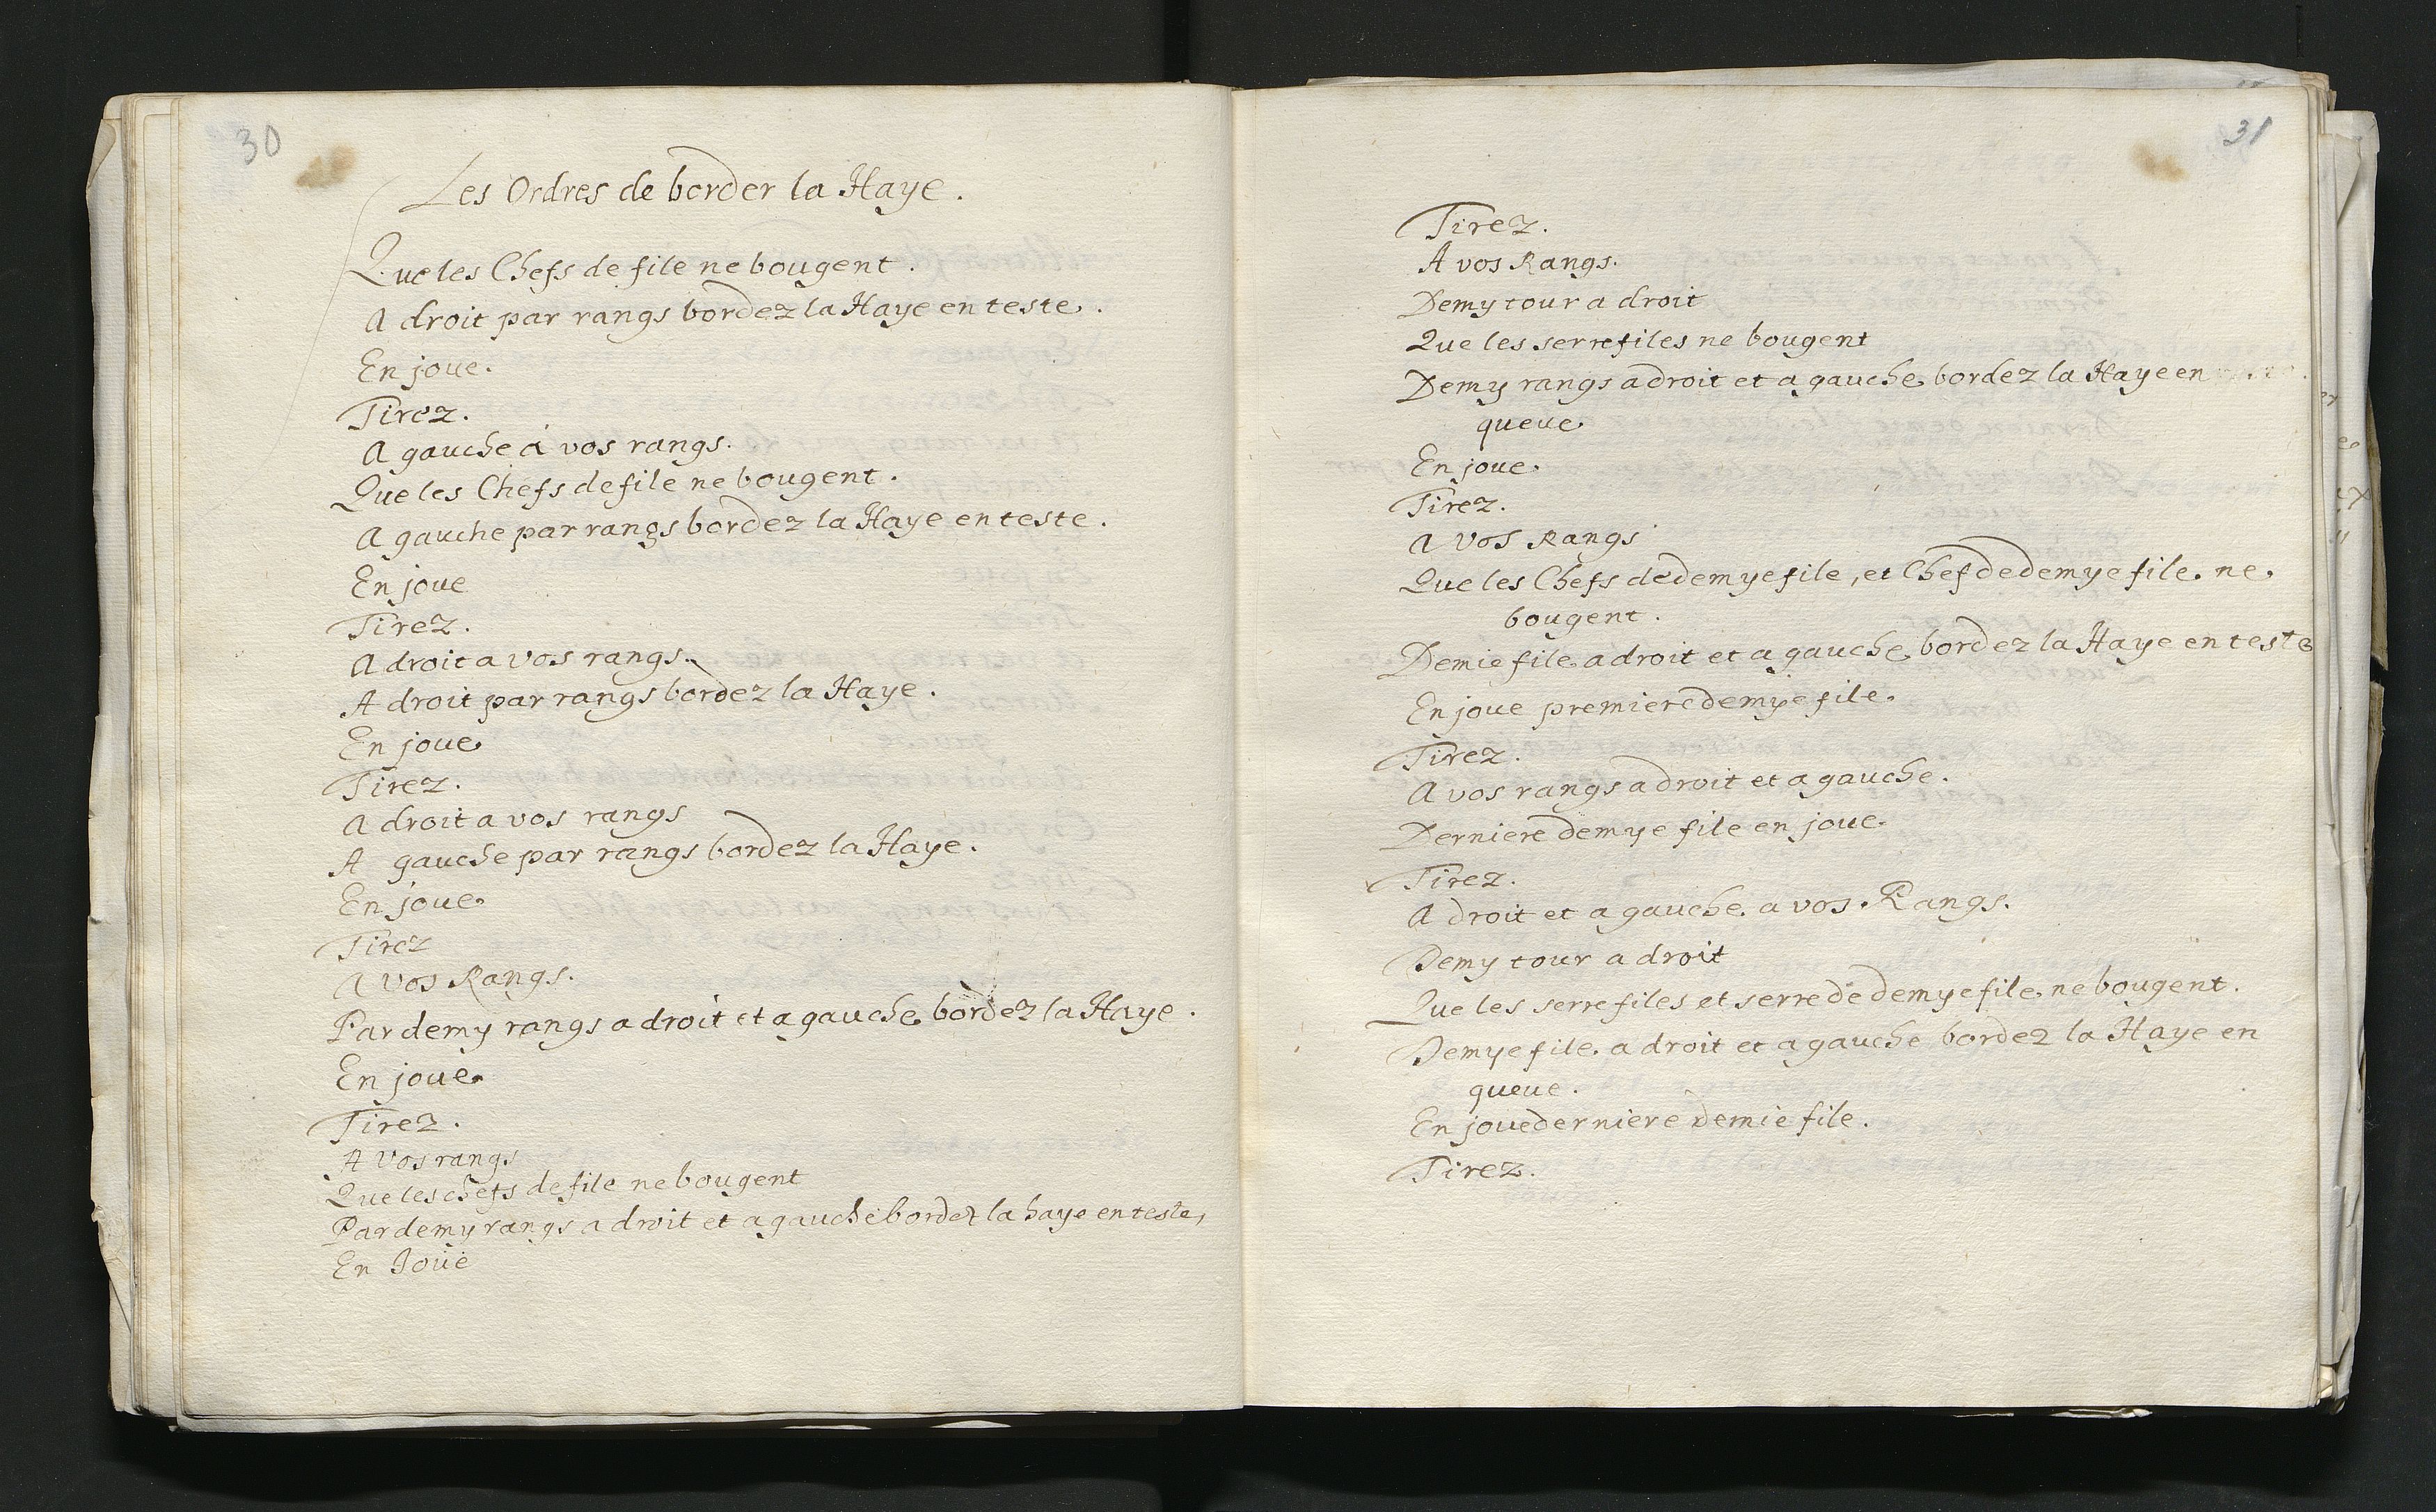 30
Les Ordres de border la Haye.
Que les Chefs de file ne bougent.
A droit par rangs bordez la Haye en teste.
En joue.
Tirez.
A gauche á vos rangs.
Que les Chefs de file ne bougent.
A gauche par rangs bordez la Haye en teste.
En joue
Tirez.
A droit a vos rangs.
A droit par rangs bordez la Haye.
En joue
Tirez.
A droit a vos rangs
A gauche par rangs bordez la Haye.
En joue
Tirez
A vos Rangs.
Par demy rangs a droit et a gauche bordez la Haye.
En joue
Tirez.
A vos rangs
Que les chefs de file ne bougent
Par demy rangs a droit et a gauche bordez la haye en teste,
En Joüe
31
Tirez.
A vos Rangs.
Demy tour a droit
Que les serrefiles ne bougent
Demy rangs a droit et a gauche bordez la Haye en
queue
En joue.
Tirez.
A vos Rangs
Que les Chefs de demye file, et Chef de demye file ne
bougent.
Demie file a droit et a gauche bordez la Haye en teste
En joue premiere demye file.
Tirez.
A vos rangs a droit et a gauche.
Derniere demye file en joue.
Tirez.
A droit et a gauche a vos Rangs.
Demy tour a droit
Que les serrefiles et serre de demye file ne bougent.
Demye file a droit et a gauche bordez la Haye en
queue.
En joue derniere demie file.
Tirez.